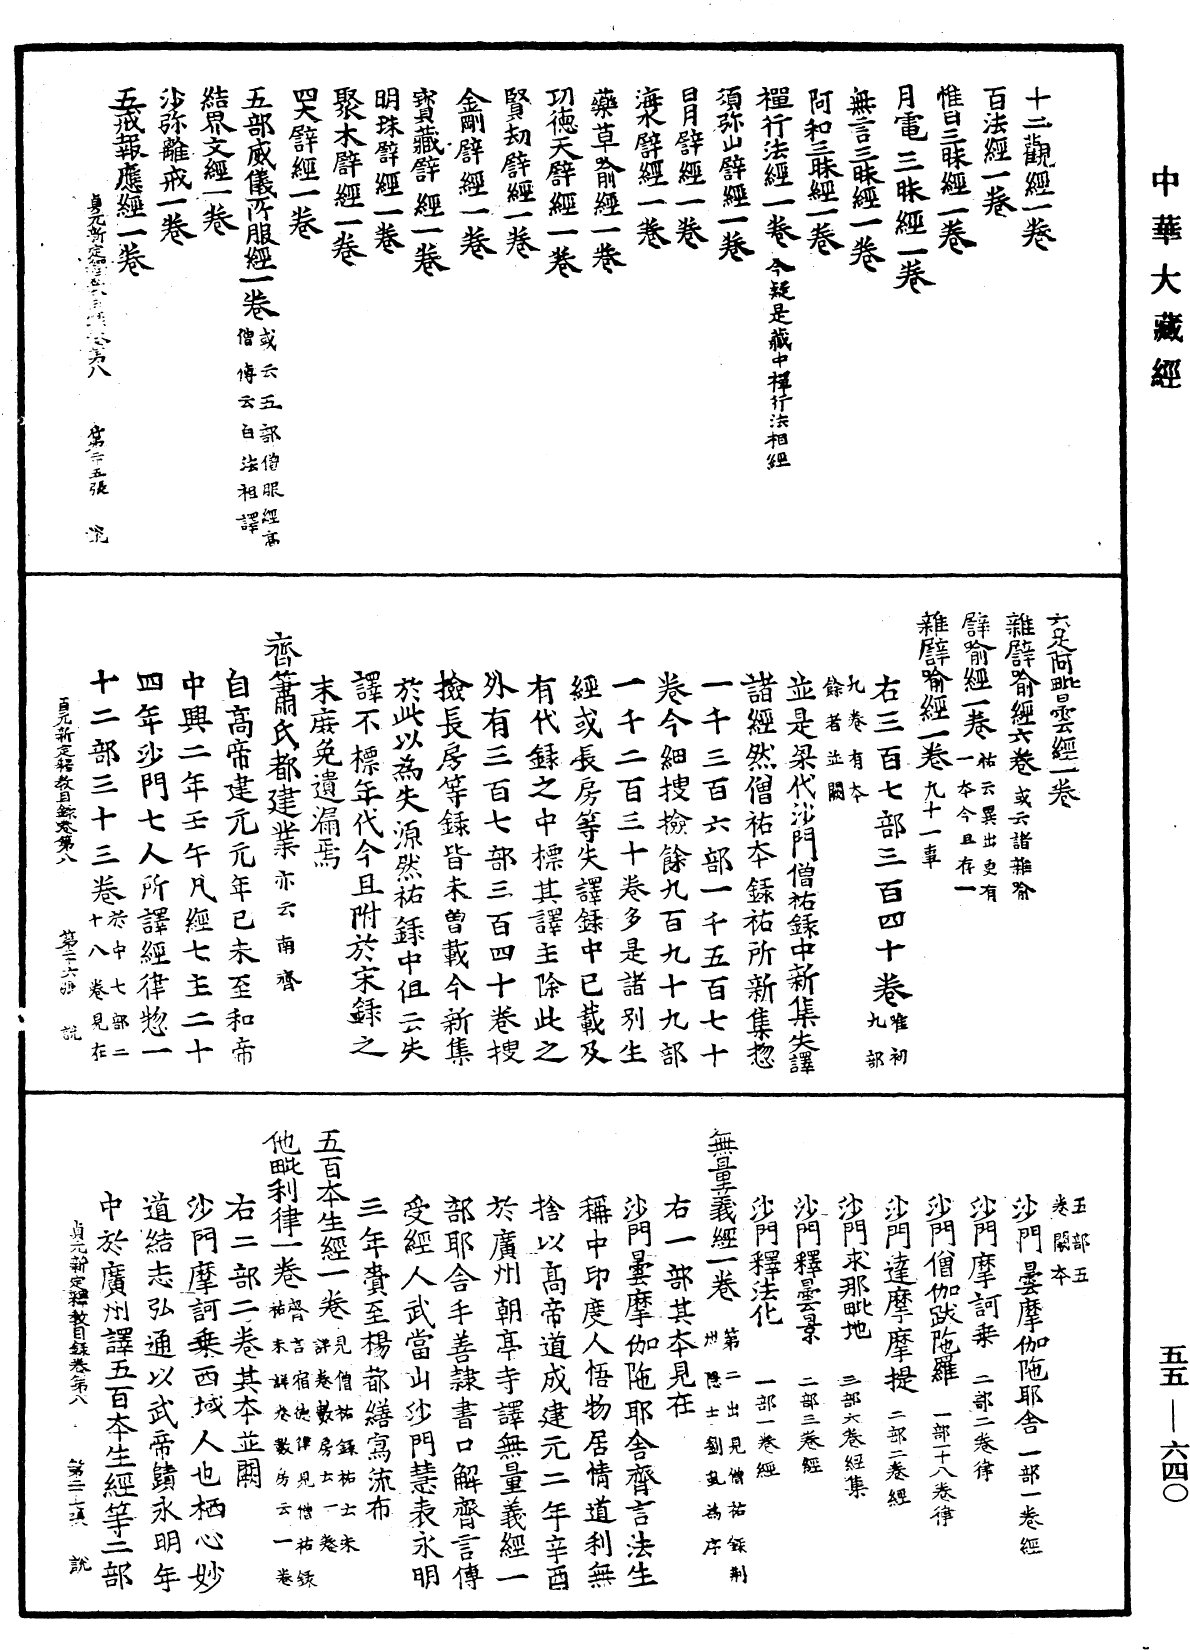 中華大藏經
十二觀經一卷
百法經一卷
惟日三昧經一卷
月電三昧經一卷
無言三昧經一卷
阿和三昧經一卷
禪行法經一卷 今疑是藏中禪行法相經
須弥山譬經一卷
日月譬經一卷
海水譬經一卷
藥草喻經一卷
功德天譬經一卷
賢劫譬經一卷
金剛譬經一卷
寳藏譬經一卷
明珠譬經一卷
聚木譬經一卷
四大譬經一卷
五部威儀所服經一卷 或云五部僧服經高
僧傳云白法祖譯
結界文經一卷
沙弥離戒一卷
五戒報應經一卷
貞元新定 第八 第二十五張
六足阿毗曇經一卷
雜譬喻經六卷 或云諸雜喻
譬喻經一卷 祐云異出更有
一本今且存一
雜譬喻經一卷 九十一事
右三百七部三百四十卷 唯初九部
九卷有本
餘者並闕
並是梁代沙門僧祐錄中新集失譯
諸經然僧祐本錄祐所新集惣
一千三百六部一千五百七十
卷今細搜撿餘九百九十九部
一千二百三十卷多是諸別生
經或長房等失譯錄中已載及
有代錄之中標其譯主除此之
外有三百七部三百四十卷搜
撿長房等錄皆未曾載今新集
於此以為失源然祐錄中但云失
譯不標年代今且附於宋錄之
末庶免遺漏焉
齊簫氏都建業 亦云南齊
自高帝建元元年己未至和帝
中興二年壬午凡經七主二十
四年沙門七人所譯經律惣一
十二部三十三卷 於中七部二
十八卷見在
貞元新定釋教目錄卷第八 第二十六張 說
五部五
卷闕本
沙門曇摩伽陁耶舍 一部一卷經
沙門摩訶乗 二部二卷律
沙門僧伽跋陁羅 一部十八卷律
沙門達摩摩提 二部二卷經
沙門求那毗地 三部六卷經集
沙門釋曇景 二部三卷經
沙門釋法化 一部一卷經
無量義經一卷 第二出見僧祐錄荆
州隱士劉虬為序
右一部其本見在
沙門曇摩伽陁耶舍齊言法生
稱中印度人悟物居情道利無
捨以高帝道成建元二年辛酉
於廣州朝亭寺譯無量義經一
部耶舍手善隷書口解齊言傳
受經人武當山沙門慧表永明
三年賷至楊都繕寫流布
五百本生經一卷 見僧祐錄祐士未
詳卷數房云一卷
他毗利律一卷 齊言宿德律見僧祐錄
祐未詳卷數房云一卷
右二部二卷其本並闕
沙門摩訶乗西域人也栖心妙
道結志弘通以武帝賾永明年
中於廣州譯五百本生經等二部
貞元新定釋教目錄卷第八 第二十七張 說
五五—六四〇